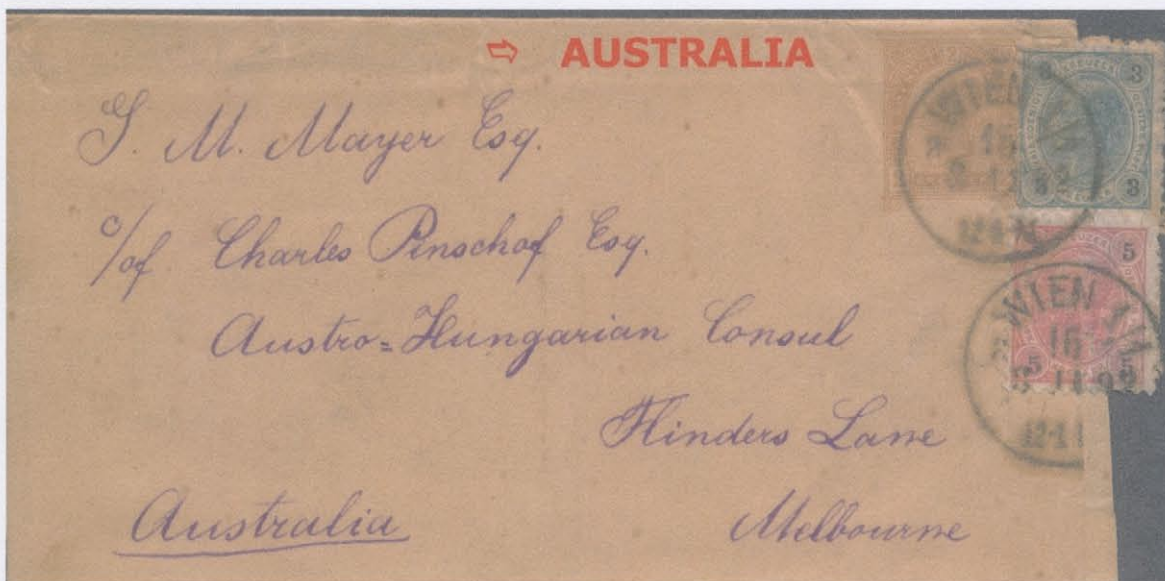 ⇨ AUSTRALIA
J. M. Mayer Esq.
c/of Charles Pinschof Esq.
Austro=Hungarian Consul
Flinders Lane
Australia Melbourne
WIEN 1/1
15
12
3 3
3 3
WIEN 1/1
16
11 92
12-1
5
5 5